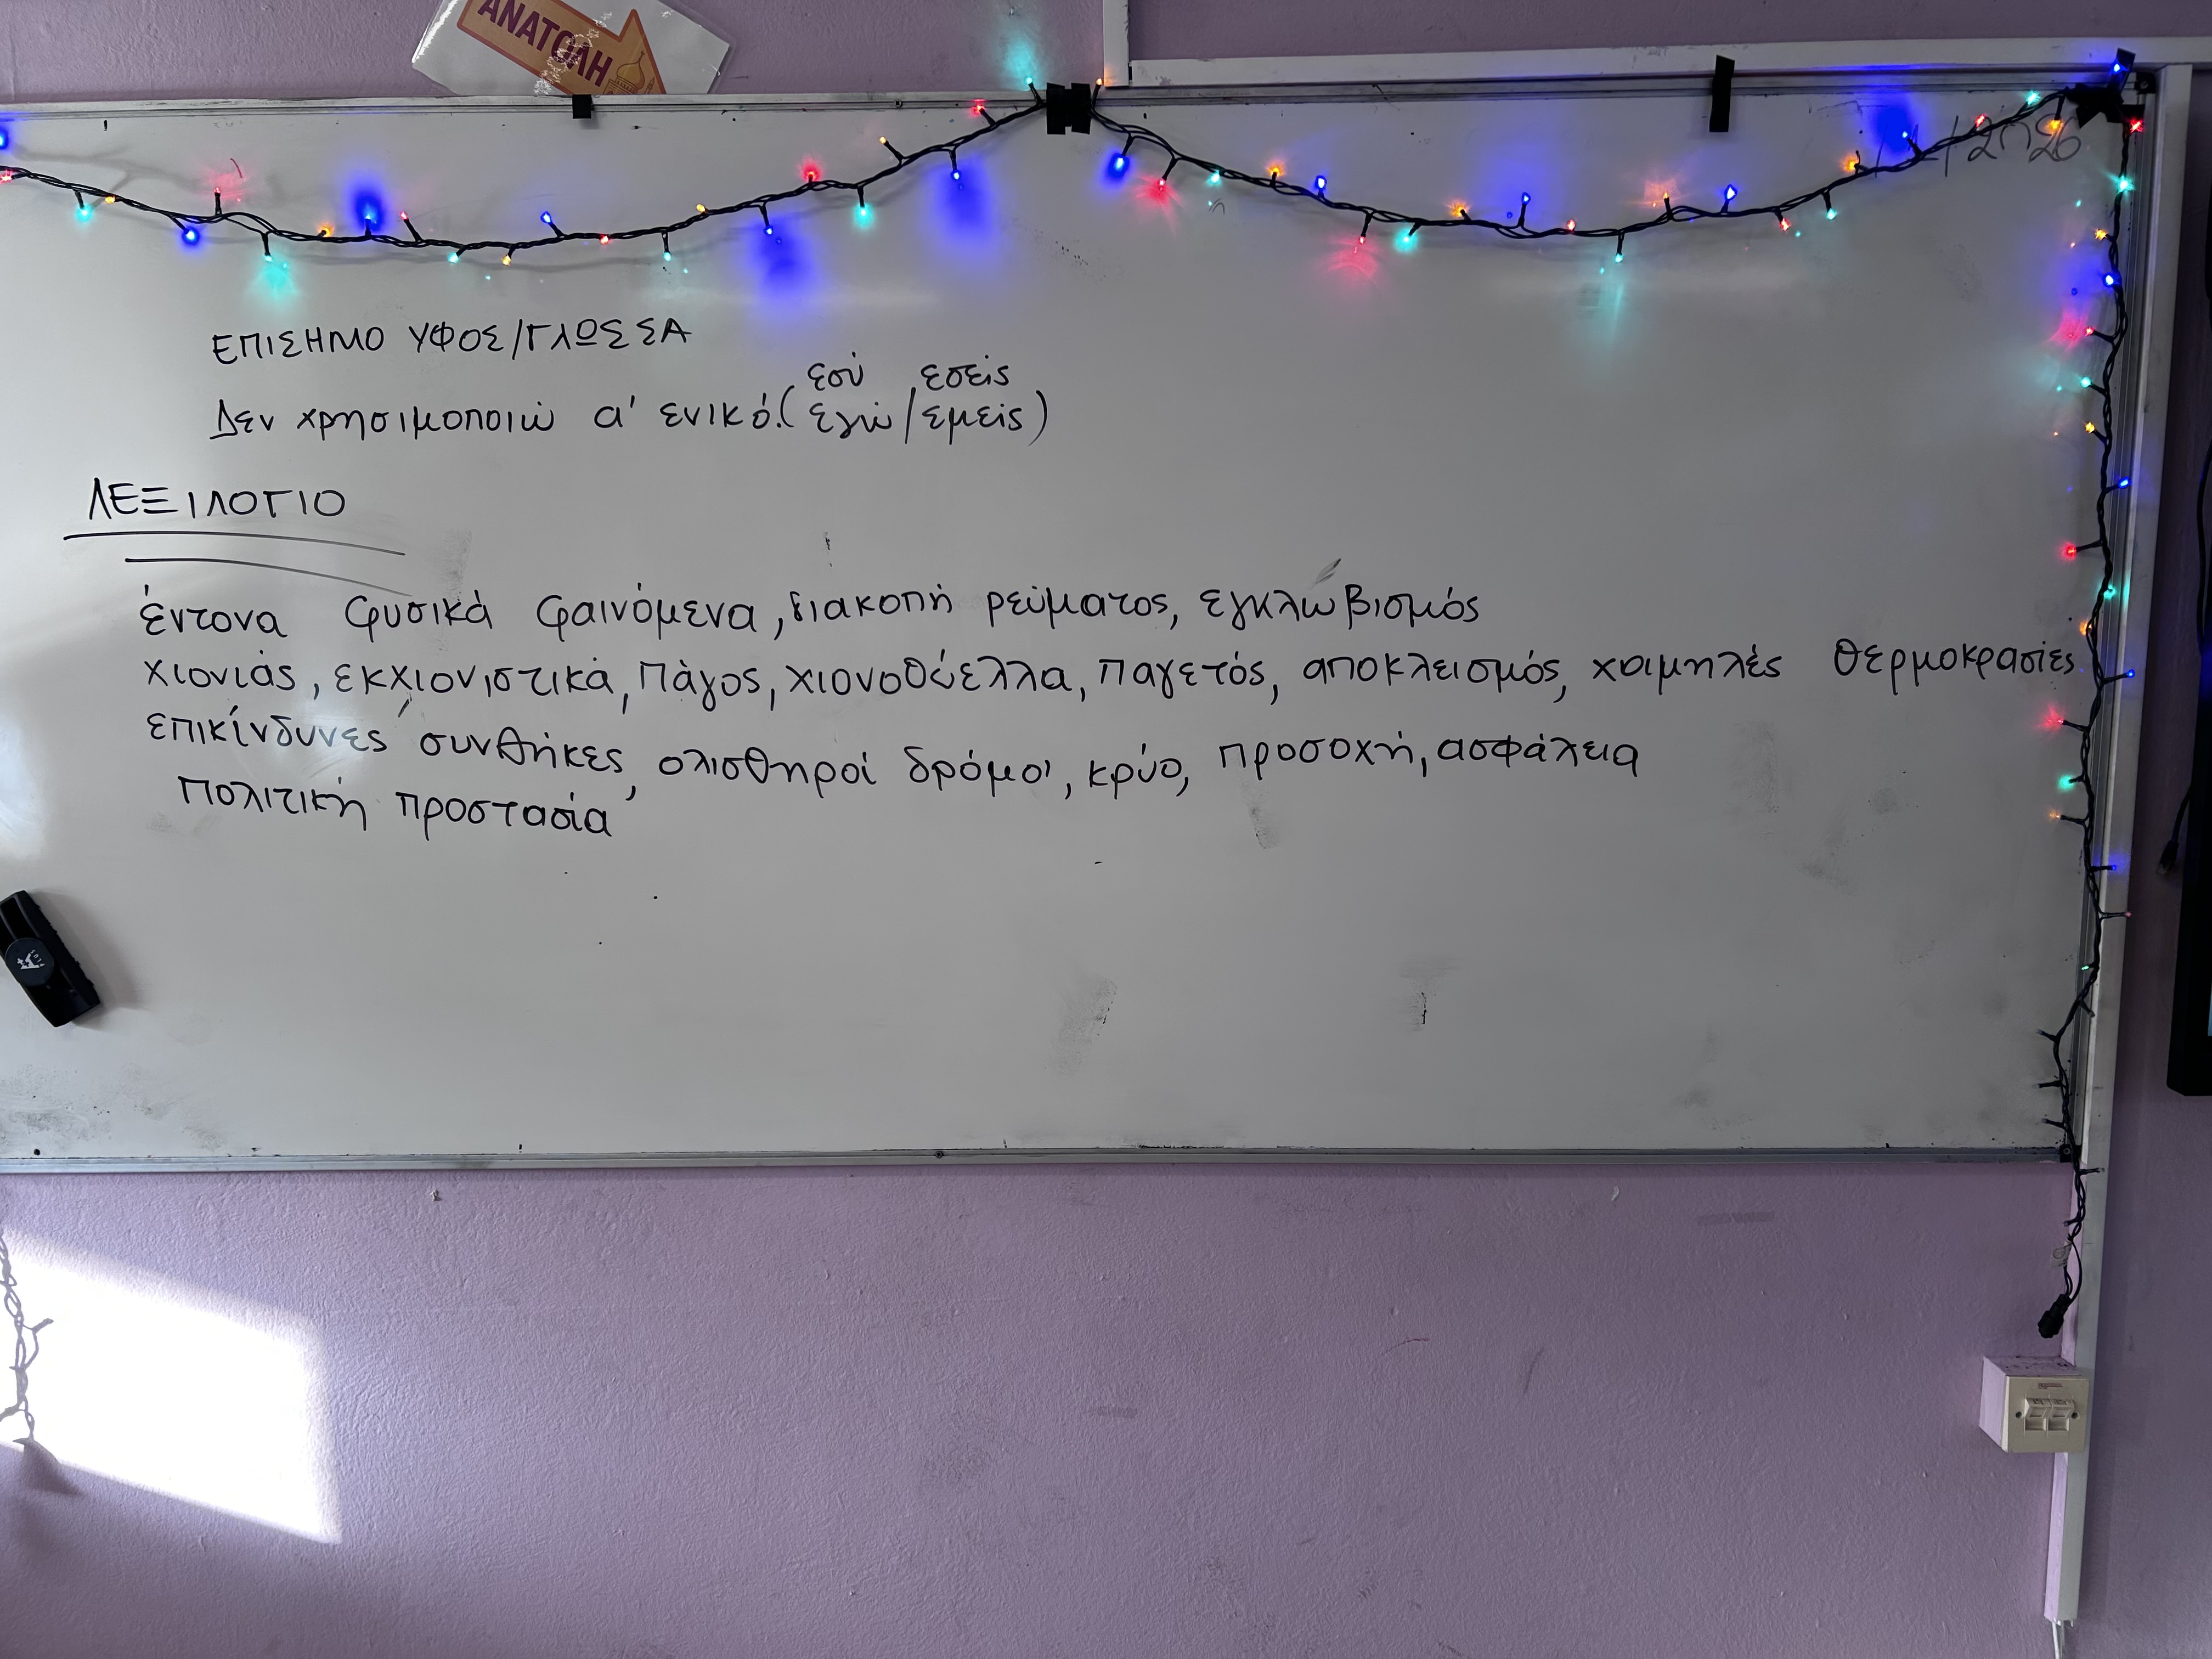 ΑΝΑΤΟΛΗ
/2026
ΕΠΙΣΗΜΟ ΥΦΟΣ/ΓΛΩΣΣΑ
εσύ εσείς
Δεν χρησιμοποιώ α' ενικό.(εγώ/εμείς)
ΛΕΞΙΛΟΓΙΟ
έντονα φυσικά φαινόμενα, διακοπή ρεύματος, εγκλωβισμός
χιονιάς, εκχιονιστικά, πάγος, χιονοθύελλα, παγετός, αποκλεισμός, χαμηλές θερμοκρασίες
επικίνδυνες συνθήκες, ολισθηροί δρόμοι, κρύο, προσοχή, ασφάλεια
Πολιτική προστασία